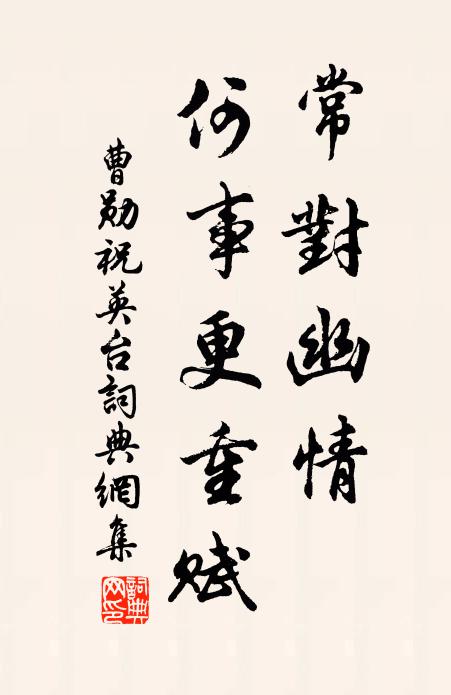 常對幽情
何事更重賦
曹勛祝英台詞典網集
詞典网印